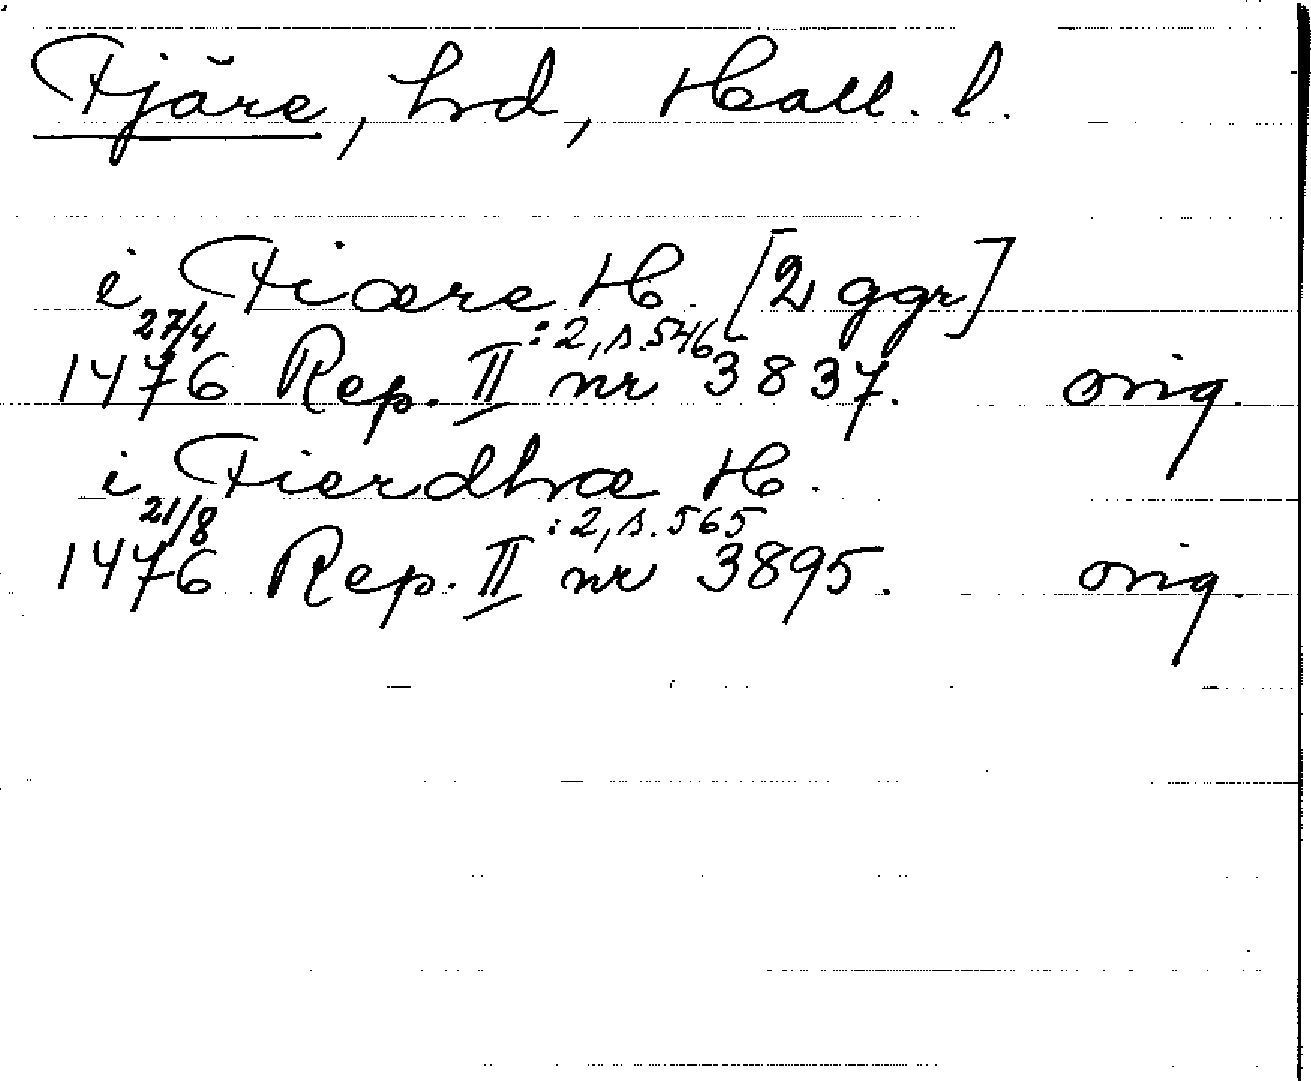 Fjäre, hd, Hall. l.
i Fiære H. [2 ggr]
27/4 :2, s. 546
1476 Rep. II nr 3837. orig.
i Fierdhræ H.
21/8 :2, s. 565
1476 Rep. II nr 3895. orig.